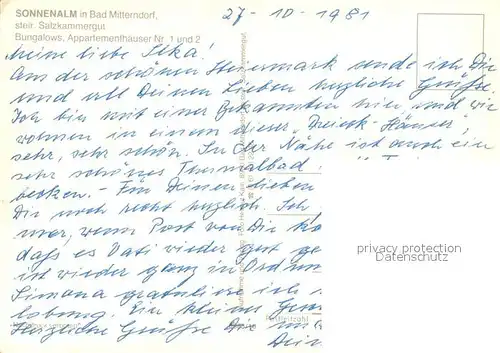 SONNENALM in Bad Mitterndorf,
steir. Salzkammergut
Bungalows, Appartementhäuser Nr. 1 und 2
27-10-1981
Meine liebe Ilka!
Aus der schönen Steiermark sende ich Dir
und all Deinen Lieben herzliche Grüße.
Ich bin mit einer Bekannten hier und wir
wohnen in einem dieser "Dreieck-Häuser",
sehr, sehr schön. In der Nähe ist auch ein
sehr schönes Thermalbad
becken. - Für Deinen lieben
Dir noch recht herzlich. Ich
war, wenn Post von Dir ko
daß es Vati wieder gut ge
ist wieder ganz in Ordnun
Simona gratuliere ich
lobung. Ein kleiner
Herzliche Grüße Dir und
Dein
privacy protection
watermark
Postleitzahl